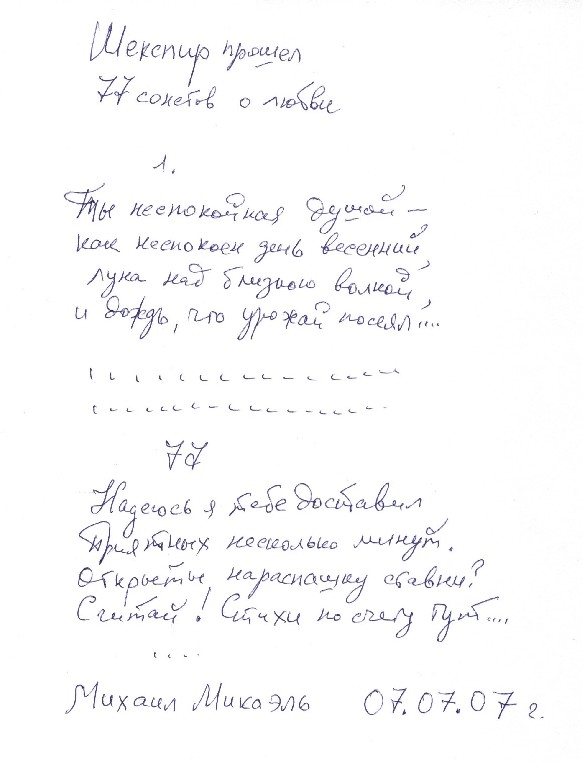 Шекспир прошел
77 сонетов о любви
1.
Ты неспокойная душой –
как неспокоен день весенний,
луна над близкою волной,
и дождь, что урожай посеял....
77
Надеюсь я тебе доставил
Приятных несколько минут.
Открыты нараспашку ставни?
Считай! Стихи по счету тут....
....
Михаил Микаэль 07.07.07 г.